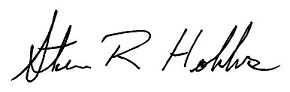 Steven R Hobbs